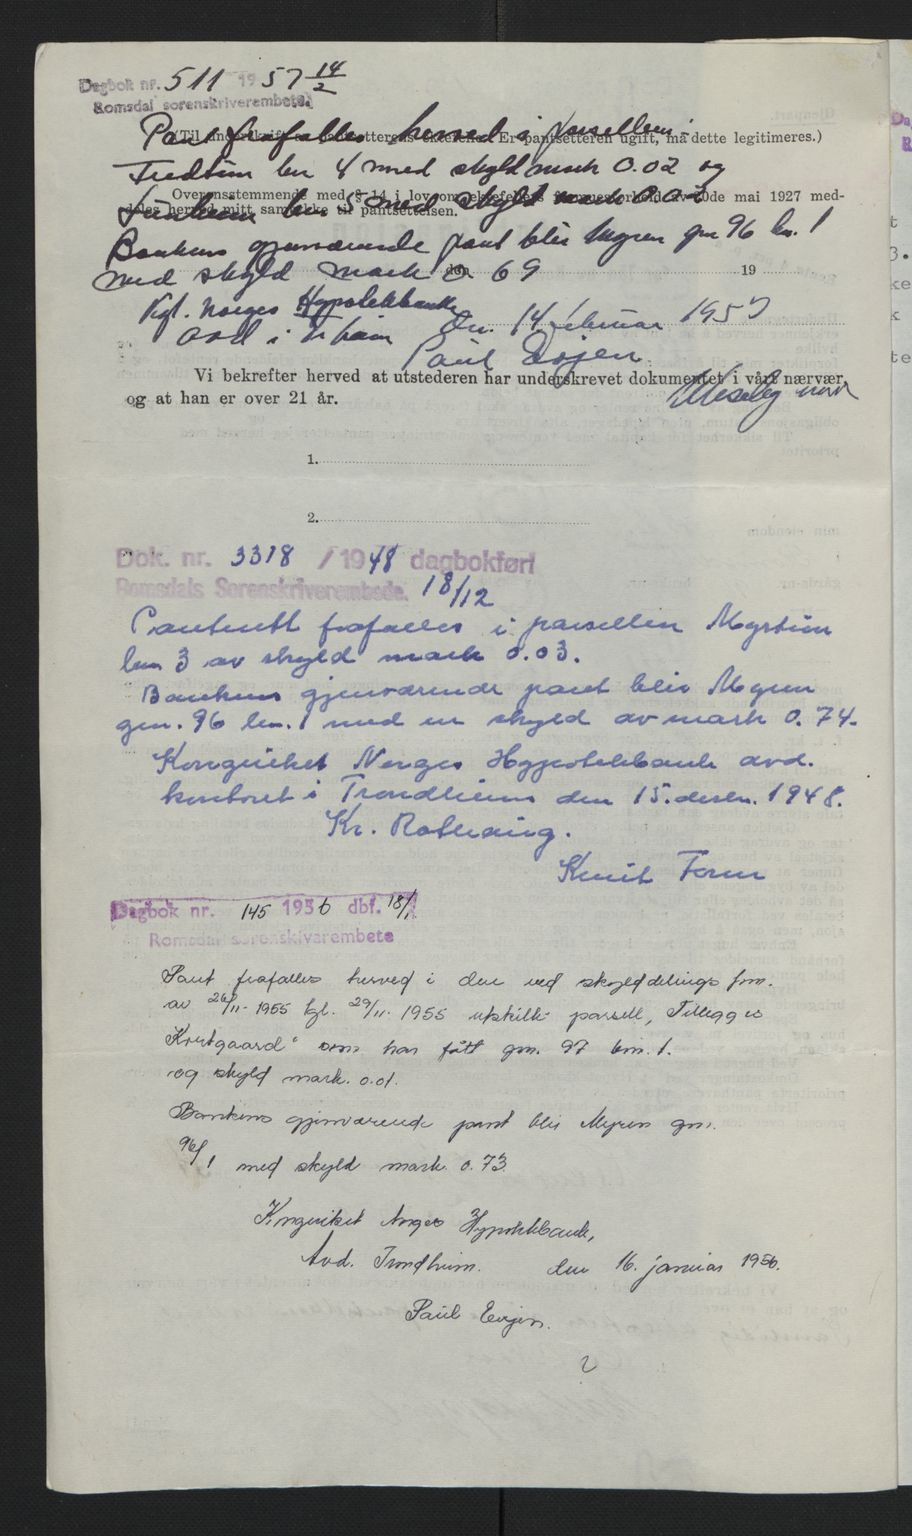 Dagbok nr. 511 1957 14/2
Romsdal sorenskriverembete
Pant frafalles herved i parsellene
(Til underskrift av pantsetterens ektefelle. Er pantsetteren ugift, må dette legitimeres.)
bnr 4 med skyld mark 0.02 og
Overensstemmende med § 14 i lov om ektefellers formuesforhold av 20de mai 1927 med-
bnr 5 med skyld mark 0.02
deles herved mitt samtykke til pantsettelsen.
Bankens gjenværende pant blir Myren gnr 96 bnr. 1
med skyld mark 0.69
den 19
Kgl. Norges Hypotekbank
avd i Tr.heim den 14 februar 1957
Paul Evjen
Vi bekrefter herved at utstederen har underskrevet dokumentet i vårt nærvær,
og at han er over 21 år.
1.
2.
Dok. nr. 3318 / 1948 dagbokført
Romsdals Sorenskriverembede. 18/12
Pantrett frafalles i parsellen Myrtun
bnr 3 av skyld mark 0.03.
Bankens gjenværende pant blir Myren
gnr. 96 bnr. 1 med en skyld av mark 0.74.
Kongeriket Norges Hypotekbank avd.
kontoret i Trondheim den 15. desbr. 1948.
Kr. Rothaug.
Knut
Dagbok nr. 145 1956 dbf. 18/1
Romsdal sorenskrivarembete
Pant frafalles herved i den ved skylddelings frn.
av 26/11-1955 tgl. 29/11-1955 utskilte parsell, "Tillegg til
Kortgaard" som har fått gnr. 97 bnr. 1.
og skyld mark. 0.01.
Bankens gjenværende pant blir Myren gnr.
96/1 med skyld mark. 0.73
Kongeriket Norges Hypotekbank,
Avd. Trondheim. den 16. januar 1956.
Paul Evjen.